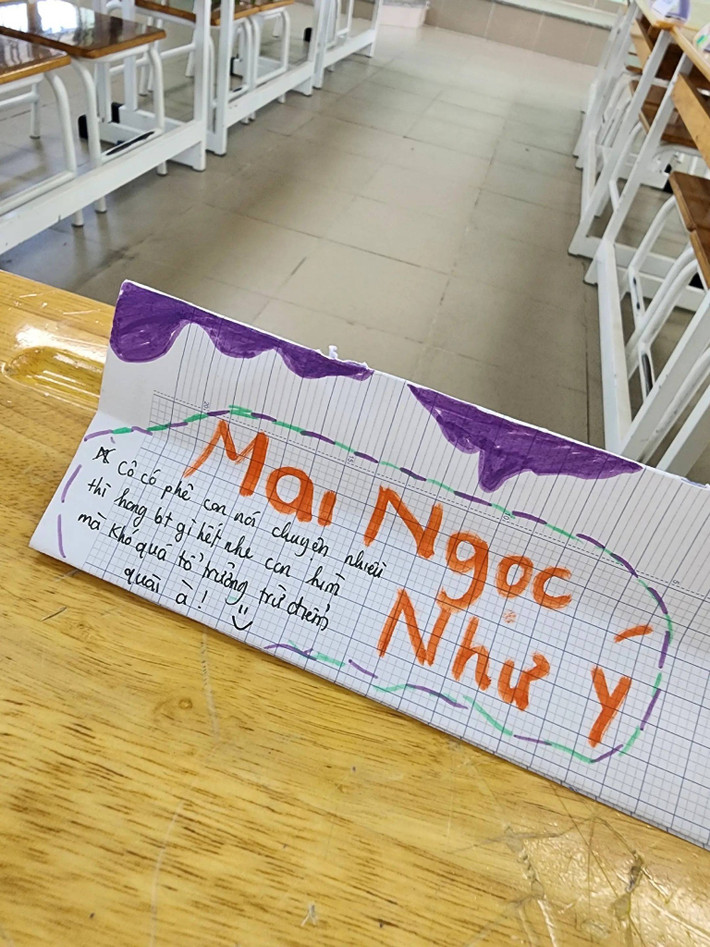 Mai Ngọc
Như Ý
Cô có phê con nói chuyện nhiều
thì hong bt gì hết nhe con hìm
mà khó quá tổ trưởng trừ điểm
quài à!